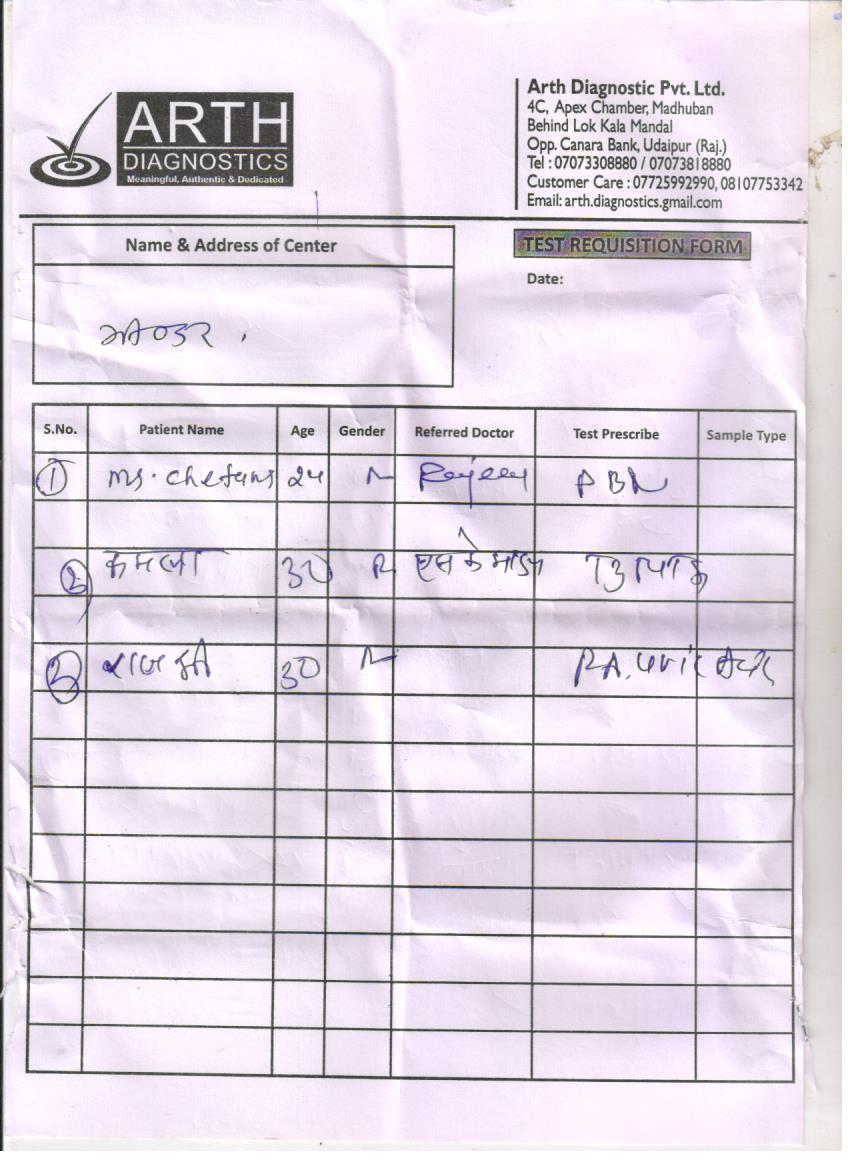 ARTH
DIAGNOSTICS
Meaningful, Authentic & Dedicated
Arth Diagnostic Pvt. Ltd.
4C, Apex Chamber, Madhuban
Behind Lok Kala Mandal
Opp. Canara Bank, Udaipur (Raj.)
Tel : 07073308880 / 07073818880
Customer Care : 07725992990, 08107753342
Email: arth.diagnostics.gmail.com
Name & Address of Center
TEST REQUISITION FORM
Date:
S.No. Patient Name Age Gender Referred Doctor Test Prescribe Sample Type
1 Ms. 24
2 कमला 30 एस के
3 30 RA,